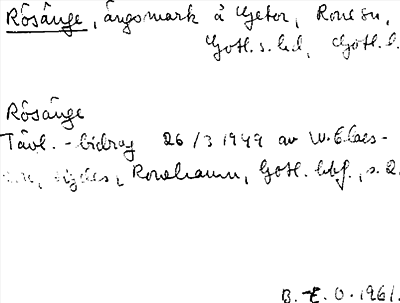 Rösänge, ängsmark å Getor, Rone sn,
Gotl. s. hd, Gotl. l.
Rösänge
Tävl.-bidrag 26/3 1949 av W. Claes-
Ronehamn, Gotl. hbf., s. 2.
B. E. O. 1961.